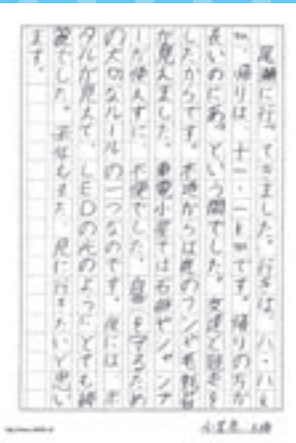 尾瀬に行ってきました。行きは、八・八k
m、帰りは、十一・一kmです。帰りの方が
長いのにあっという間でした。友達と話をを
したからです。木道からは鹿のフンや毛
が見えました。東電小屋では石けんやシャンプ
ーが使えずに不便でした。自然を守るため
の大切なルールの一つなのです。夜には、ホ
タルが見えて、LEDの光のようにとても綺
麗でした。また見に行きたいと思い
ます。